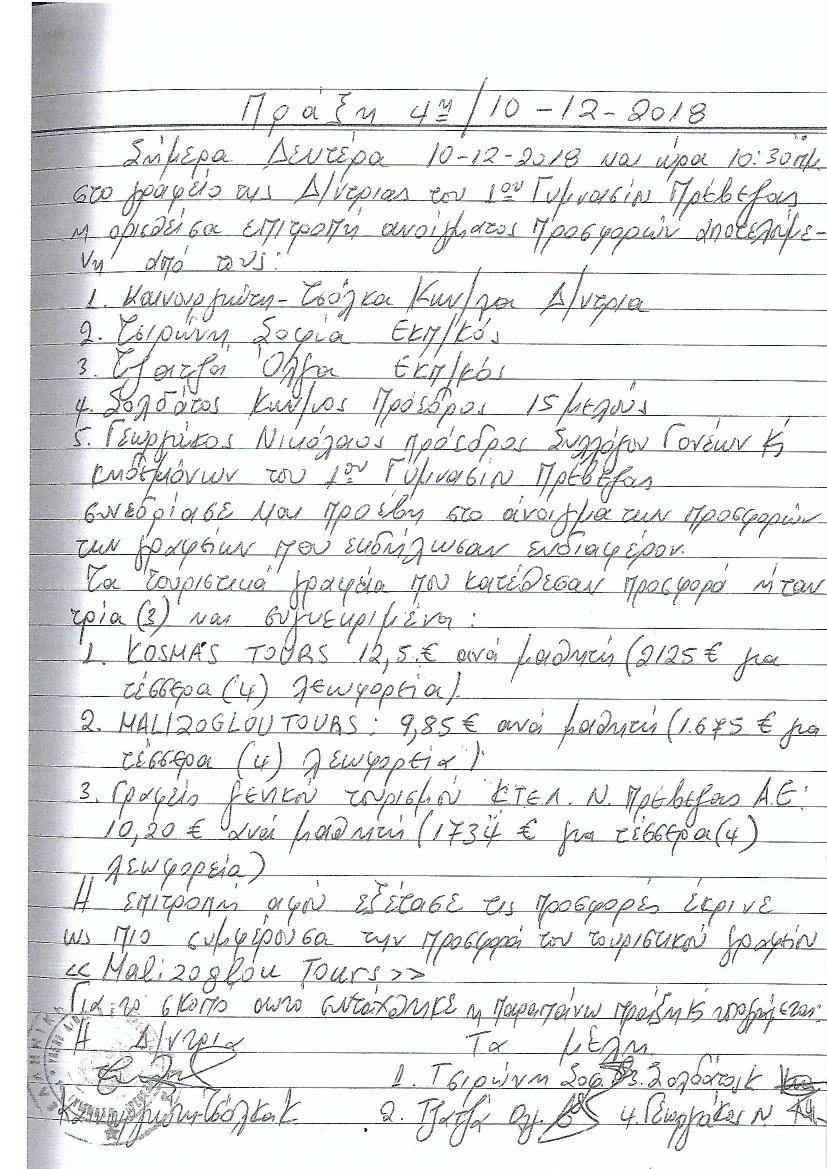 Πράξη 4η/10-12-2018
Σήμερα Δευτέρα 10-12-2018 και ώρα 10:30πμ
στο γραφείο της Δ/ντριας του 1ου Γυμνασίου Πρέβεζας
η ορισθείσα επιτροπή ανοίγματος προσφορών αποτελούμε-
νη από τους:
1. Καινουργιώτη-Τσόλκα Κων/να Δ/ντρια
2. Τσιρώνη Σοφία Εκπ/κός
3. Τζατζά Όλγα Εκπ/κός
4. Σολδάτος Κων/νος Πρόεδρος 15μελούς
5. Γεωργάκος Νικόλαος πρόεδρος Συλλόγου Γονέων κ
κηδεμόνων του 1ου Γυμνασίου Πρέβεζας
συνεδρίασε και προέβη στο άνοιγμα των προσφορών
των γραφείων που εκδήλωσαν ενδιαφέρον.
Τα τουριστικά γραφεία που κατέθεσαν προσφορά ήταν
τρία (3) και συγκεκριμένα:
1. KOSMAS TOURS 12,5.€ ανά μαθητή (2125 € για
τέσσερα (4) λεωφορεία).
2. MALIZOGLOU TOURS: 9,85€ ανά μαθητή (1.675 € για
τέσσερα (4) λεωφορεία)
3. Γραφείο γενικού τουρισμού ΚΤΕΛ. Ν. Πρέβεζας Α.Ε:
10,20 € ανά μαθητή (1734 € για τέσσερα (4)
λεωφορεία)
Η επιτροπή αφού εξέτασε τις προσφορές έκρινε
ως πιο συμφέρουσα την προσφορά του τουριστικού γραφείου
<< Malizoglou Tours >>
Για το σκοπό αυτό συντάχθηκε η παραπάνω πράξη κ υπογράφεται:
Η Δ/ντρια Τα μέλη
1. Τσιρώνη Σοφ. 3. Σολδάτος Κ
Καινουργιώτη-Τσόλκα Κ. 2. Τζατζά Ολ. 4. Γεωργάκος Ν